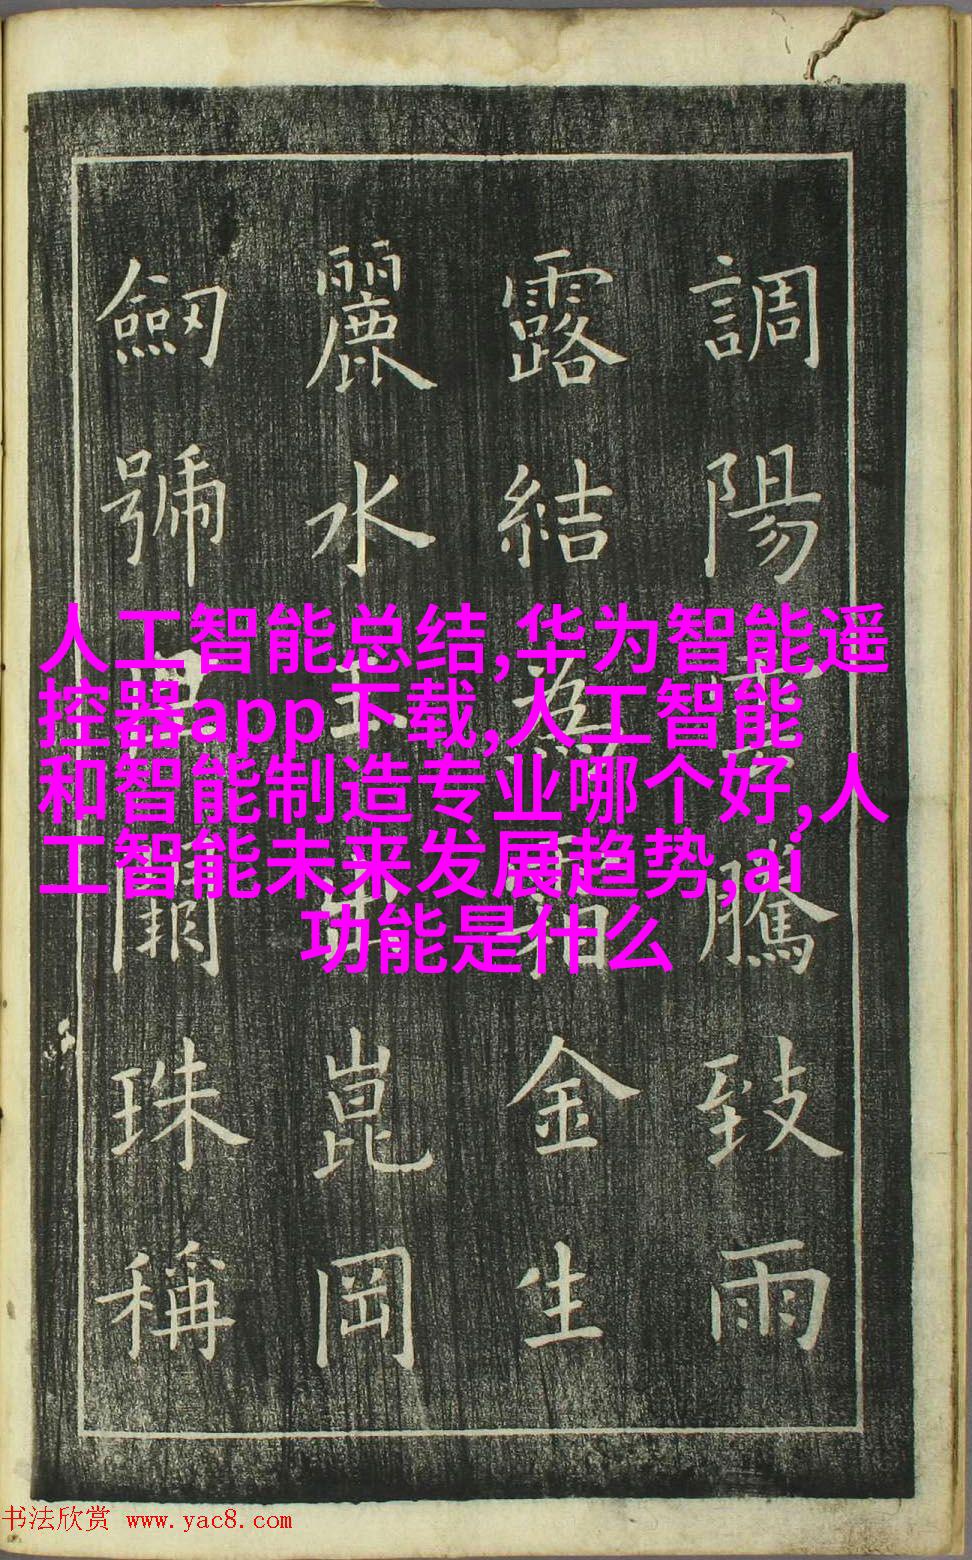 調陽騰致雨
露結爲金生
麗水崑岡
劒號巨闕珠稱
人工智能总结,华为智能遥
控器app下载,人工智能
和智能制造专业哪个好,人
工智能未来发展趋势,ai
功能是什么
书法欣赏 www.yac8.com